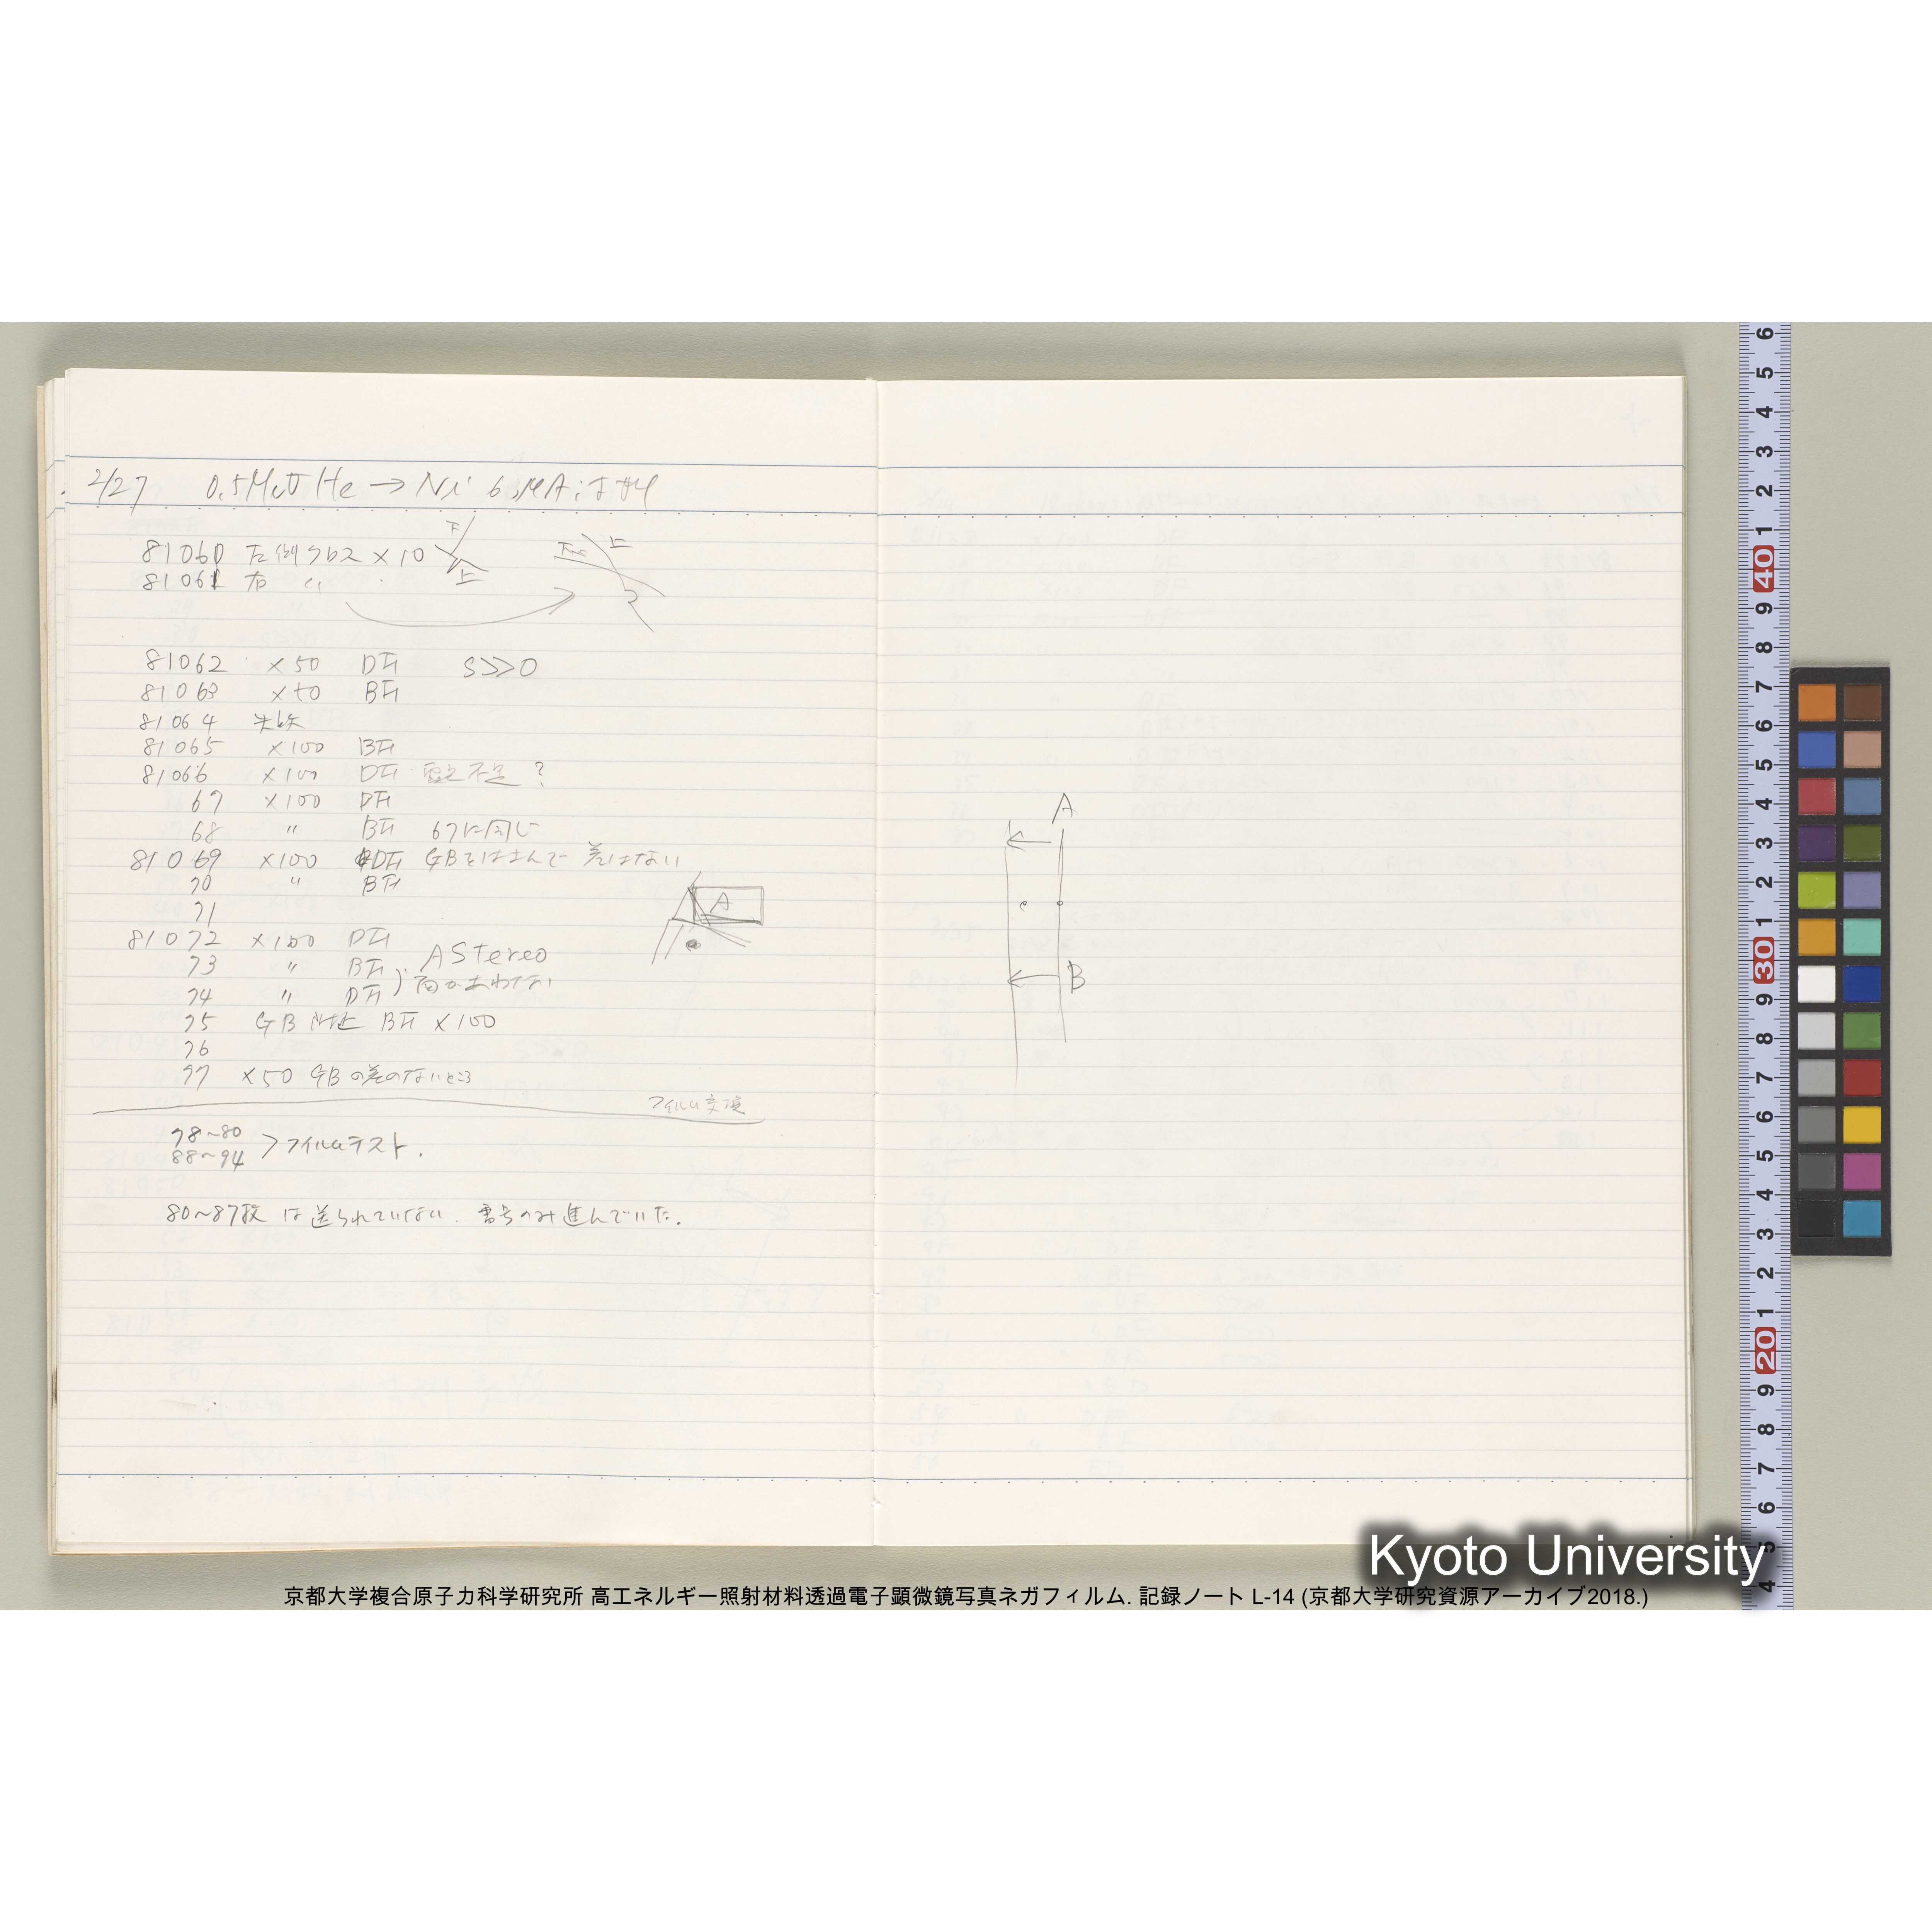 2/27 0.5MeV He → Ni
81060 左側クロス ×10 下 上
81061 右 〃
上
81062 ×50 DF S>>0
81063 ×50 BF
81064 失敗
81065 ×100 BF
81066 ×100 DF 露光不足?
67 ×100 DF
68 〃 BF 67に同じ
81069 ×100 DF GBをはさんで 差はない
70 〃 BF
71
A
81072 ×100 DF
73 〃 BF A Stereo
74 〃 DF 面があわない
75 GB 付近 BF ×100
76
77 ×50 GBの差のないところ
フィルム交換
78~80
88~94 > フィルムテスト.
80~87枚 は送られていない. 番号のみ進んでいた.
A
B
6 5 4 3 2 1 40 9 8 7 6 5 4 3 2 1 30 9 8 7 6 5 4 3 2 1 20 9 8 7 6 5 4
Kyoto University
京都大学複合原子力科学研究所 高エネルギー照射材料透過電子顕微鏡写真ネガフィルム. 記録ノート L-14 (京都大学研究資源アーカイブ2018.)